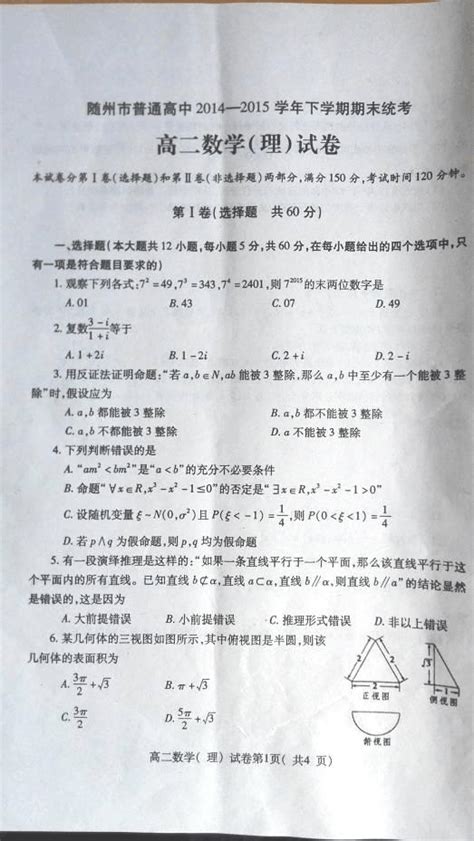 随州市普通高中 2014—2015 学年下学期期末统考
高二数学(理)试卷
本试卷分第Ⅰ卷(选择题)和第Ⅱ卷(非选择题)两部分,满分 150 分,考试时间 120 分钟。
第Ⅰ卷(选择题 共 60 分)
一、选择题(本大题共 12 小题,每小题 5 分,共 60 分,在每小题给出的四个选项中,只
有一项是符合题目要求的)
1. 观察下列各式:7² = 49,7³ = 343,7⁴ = 2401,则 7²⁰¹⁵ 的末两位数字是
A. 01 B. 43 C. 07 D. 49
2. 复数 (3 - i)/(1 + i) 等于
A. 1 + 2i B. 1 - 2i C. 2 + i D. 2 - i
3. 用反证法证明命题:“若 a,b∈N,ab 能被 3 整除,那么 a,b 中至少有一个能被 3 整
除”时,假设应为
A. a,b 都能被 3 整除 B. a,b 都不能被 3 整除
C. a,b 不都能被 3 整除 D. a 不能被 3 整除
4. 下列判断错误的是
A. “am² < bm²”是“a < b”的充分不必要条件
B. 命题“∀x∈R,x³ - x² - 1≤0”的否定是“∃x∈R,x³ - x² - 1 > 0”
C. 设随机变量 ξ ~ N(0,σ²)且 P(ξ < -1) = 1/4,则 P(0 < ξ < 1) = 1/4
D. 若 p∧q 为假命题,则 p,q 均为假命题
5. 有一段演绎推理是这样的:“如果一条直线平行于一个平面,那么该直线平行于这
个平面内的所有直线。已知直线 b⊄α,直线 a⊂α,直线 b∥α,则直线 b∥a”的结论显然
是错误的,这是因为
A. 大前提错误 B. 小前提错误 C. 推理形式错误 D. 非以上错误
6. 某几何体的三视图如图所示,其中俯视图是半圆,则该
几何体的表面积为
A. 3π/2 + √3 B. π + √3
C. 3π/2 D. 5π/2 + √3
2 2 √3
2
正视图 侧视图
俯视图
高二数学( 理) 试卷第1页( 共4 页)